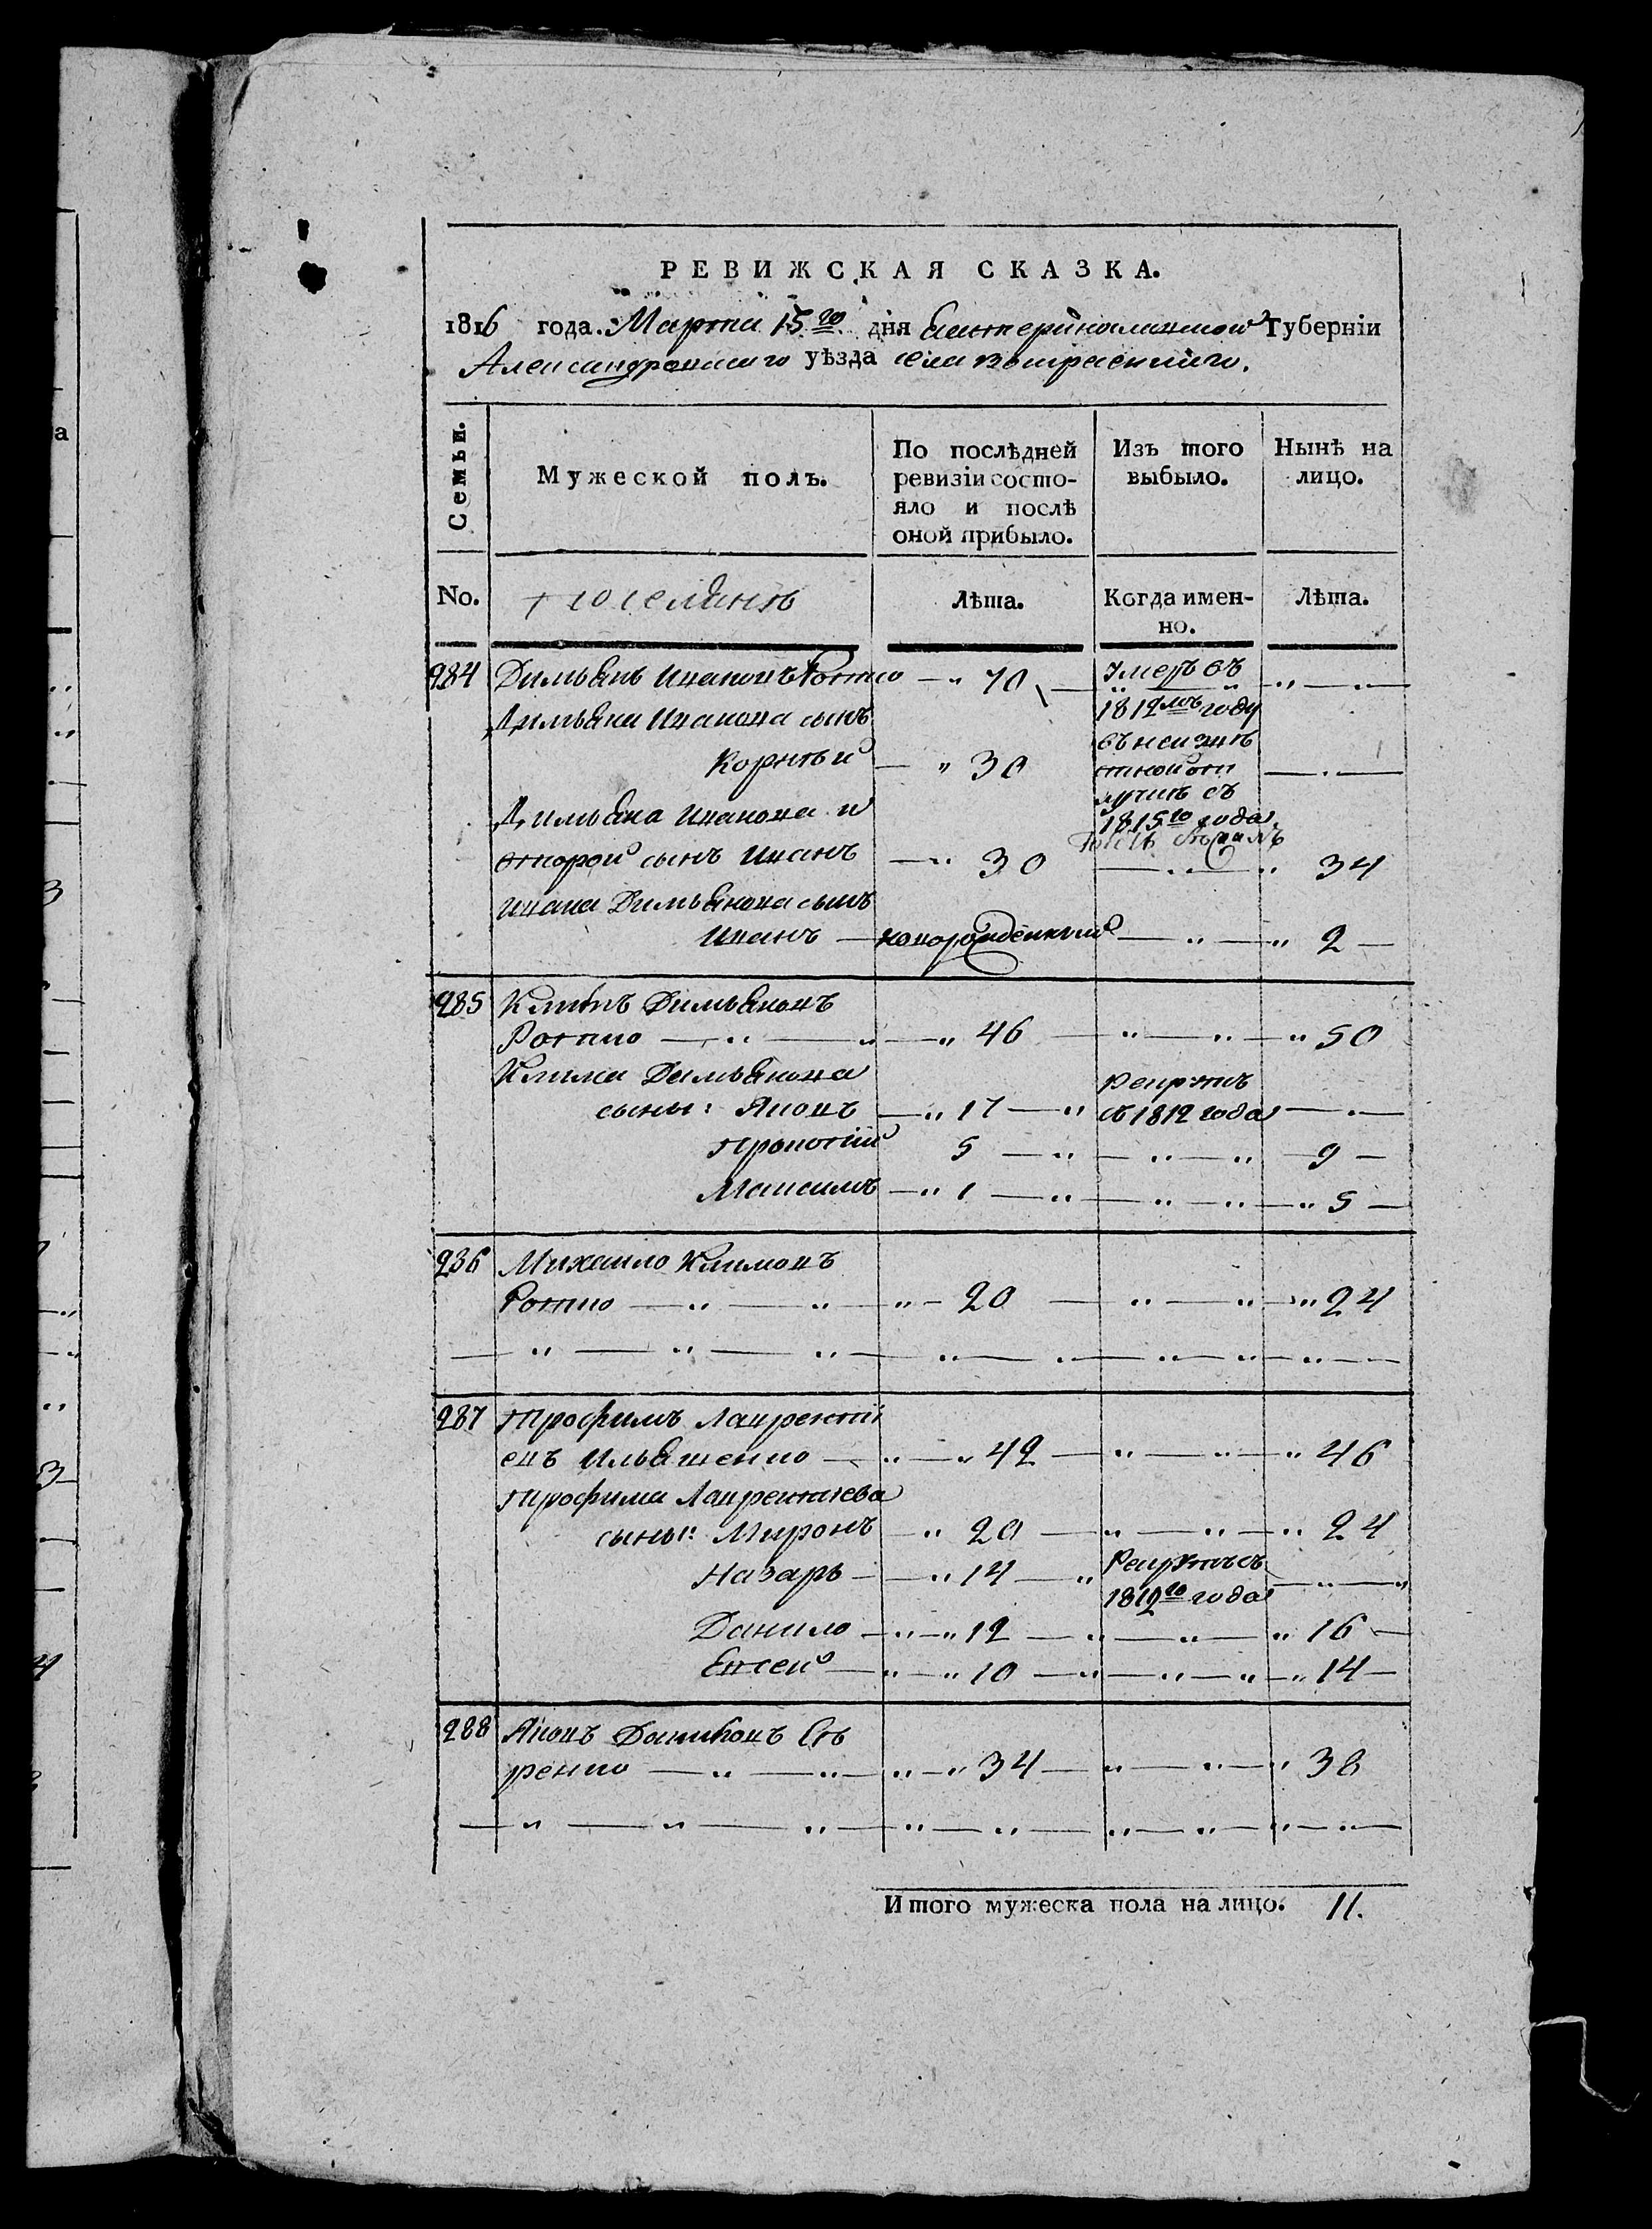 РЕВИЖСКАЯ СКАЗКА.
1816 года Марта 15го дня Екатеринославской Губерніи
Александровскаго уѣзда села
Семьи.
Мужеской полъ.
По послѣдней ревизіи состо-
яло и послѣ
оной прибыло.
Изъ того
выбыло.
Нынѣ на
лицо.
No.
поселянъ
Лѣта.
Когда имен-
но.
Лѣта.
284 Димьянъ Ивановъ Ротко — " 70 — умеръ въ
1812мъ году
Димьяна Иванова сынъ
Корнѣй — " 30 въ неизвѣ
стной от
лучкѣ съ
1815го года
Димьяна Иванова
второй сынъ Иванъ — " 30 — " — " 34
Ивана Димьянова сынъ
Иванъ — новорожденный — " — " 2 —
285 Климъ Димьяновъ
Ротко — " — " — " 46 — " — " — " 50
Клима Димьянова
сыны: Яковъ — " 17 — " рекрутъ
съ 1812 года — " —
Прокофій 5 — " — " — " — 9 —
Максимъ — " 1 — " — " — " — " 5 —
286 Михайло Климовъ
Ротко — " — " — " — 20 — " — " — " 24
287 Трофимъ Лаврентi
евъ Ильяшенко — " — " 42 — " — " — " 46
Трофима Лаврентіева
сыны: Миронъ — " 20 — " — " — " 24
Назаръ — " 14 — " Рекрутъ съ
1812го года — " — "
Данило — " — " 12 — " — " — " 16 —
Евсей — " — " 10 — " — " — " — " 14 —
288 Яковъ Даниловъ
ренко — " — " — " — " 34 — " — " — " 38
Итого мужеска пола на лицо. 11.